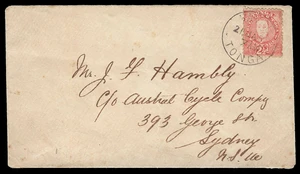 TONGA
2½
Mr. J. F. Hambly
C/o Austral Cycle Compy
393 George Str
Sydney
N.S.W